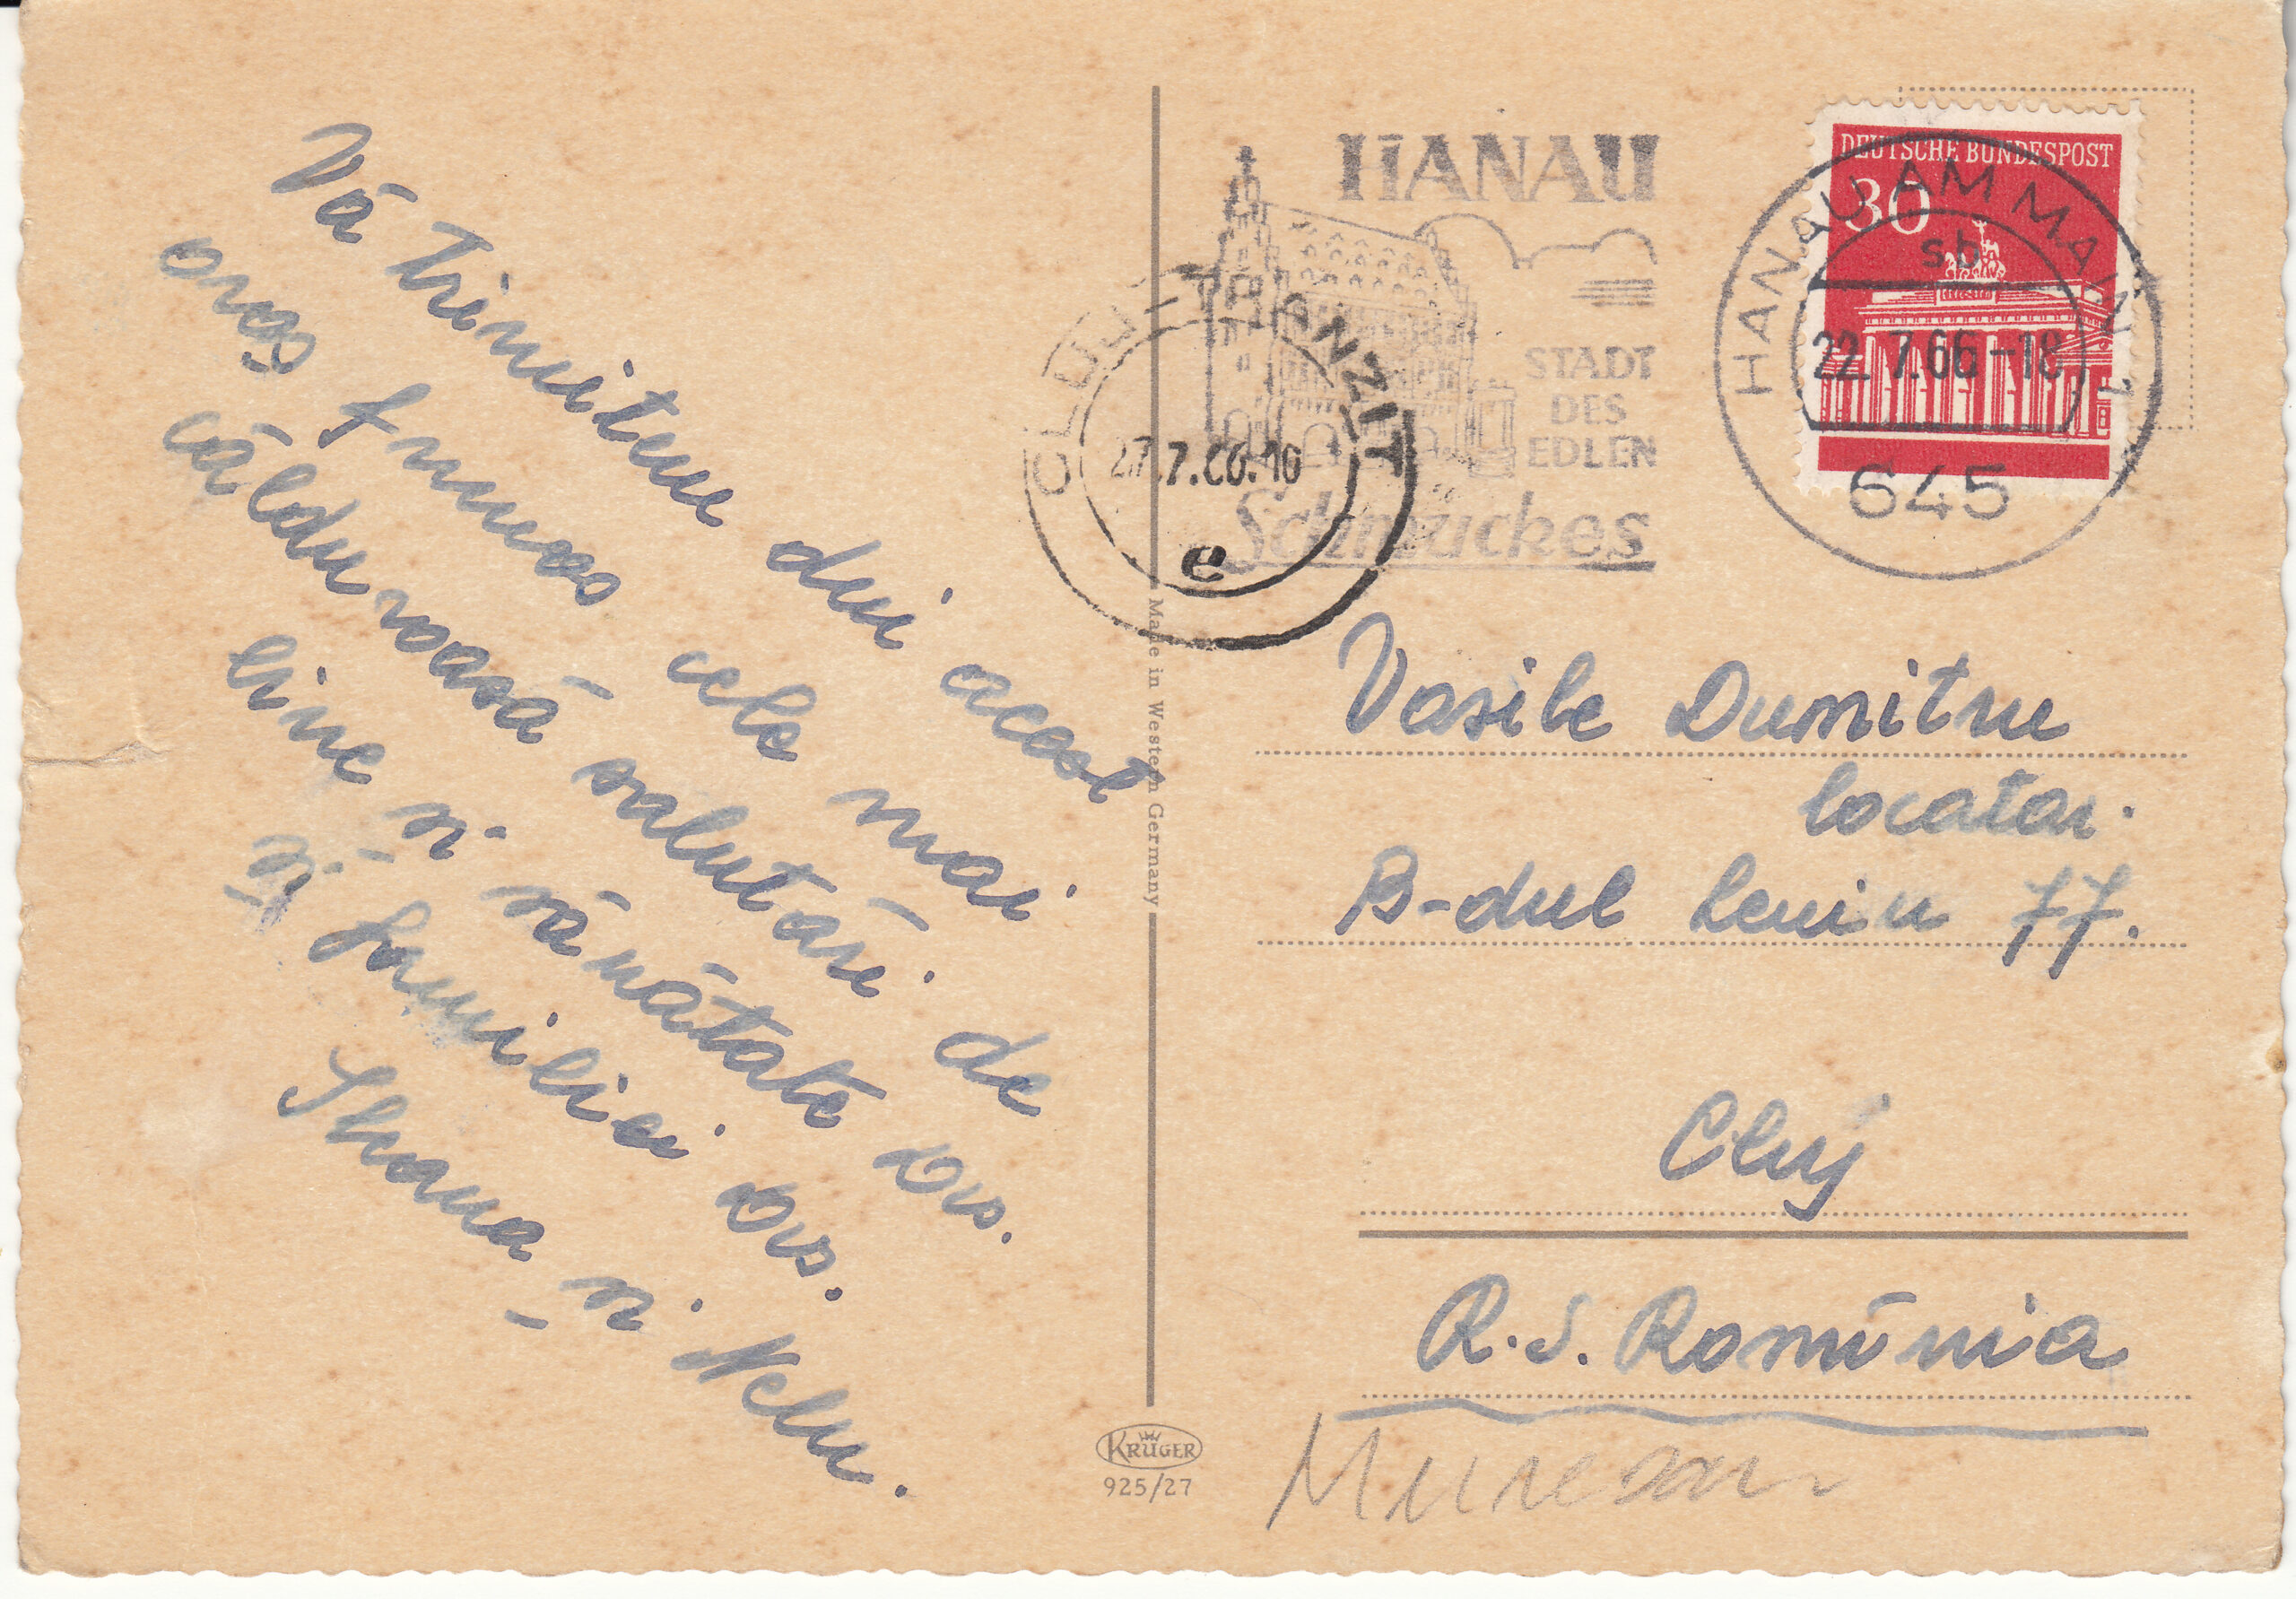 Vă trimitem din acest
oraș frumos cele mai
călduroasă salutări de
bine și sănătate Dvs.
și familiei Dvs.
și Nelu.
HANAU
STADT
DES
EDLEN
Schmuckes
DEUTSCHE BUNDESPOST
30
HANAU AM MAIN 1
sb
22.7.66-18
645
CLUJ TRANZIT
27.7.66.16
e
Made in Western Germany
Vasile Dumitru
locatar.
B-dul Lenin 77.
Cluj
R.S. Romînia
KRÜGER
925/27